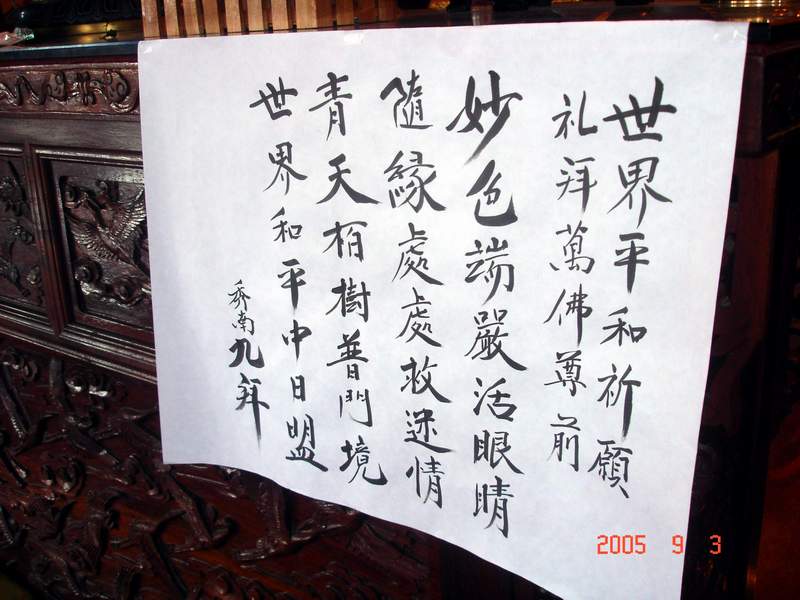 世界平和祈願
礼拜萬佛尊前
妙色端嚴活眼睛
隨緣處處救迷情
青天栢樹普門境
世界和平中日盟
南九拜
2005 9 3